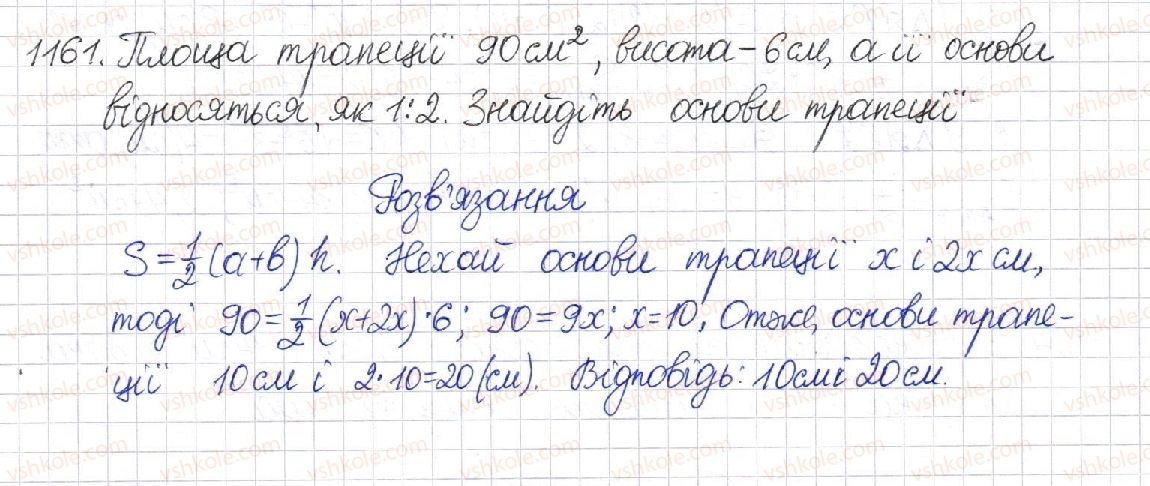 1161. Площа трапеції 90 см², висота – 6 см, а її основи
відносяться, як 1:2. Знайдіть основи трапеції
Розв'язання
S = 1/2 (a+b) h. Нехай основи трапеції x і 2x см,
тоді 90 = 1/2 (x+2x)·6; 90 = 9x; x = 10. Отже, основи трапе-
ції 10 см і 2·10=20 (см). Відповідь: 10 см і 20 см.